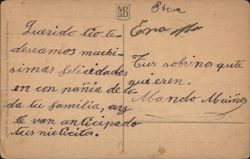 MB
Querido tío te
deseamos muchi-
simas felicidades
en con pañia de to
da tu familia, ay
te van anticipado
tus nietecitos.
Tus sobrinos qute
quieren.
Manolo Muiños